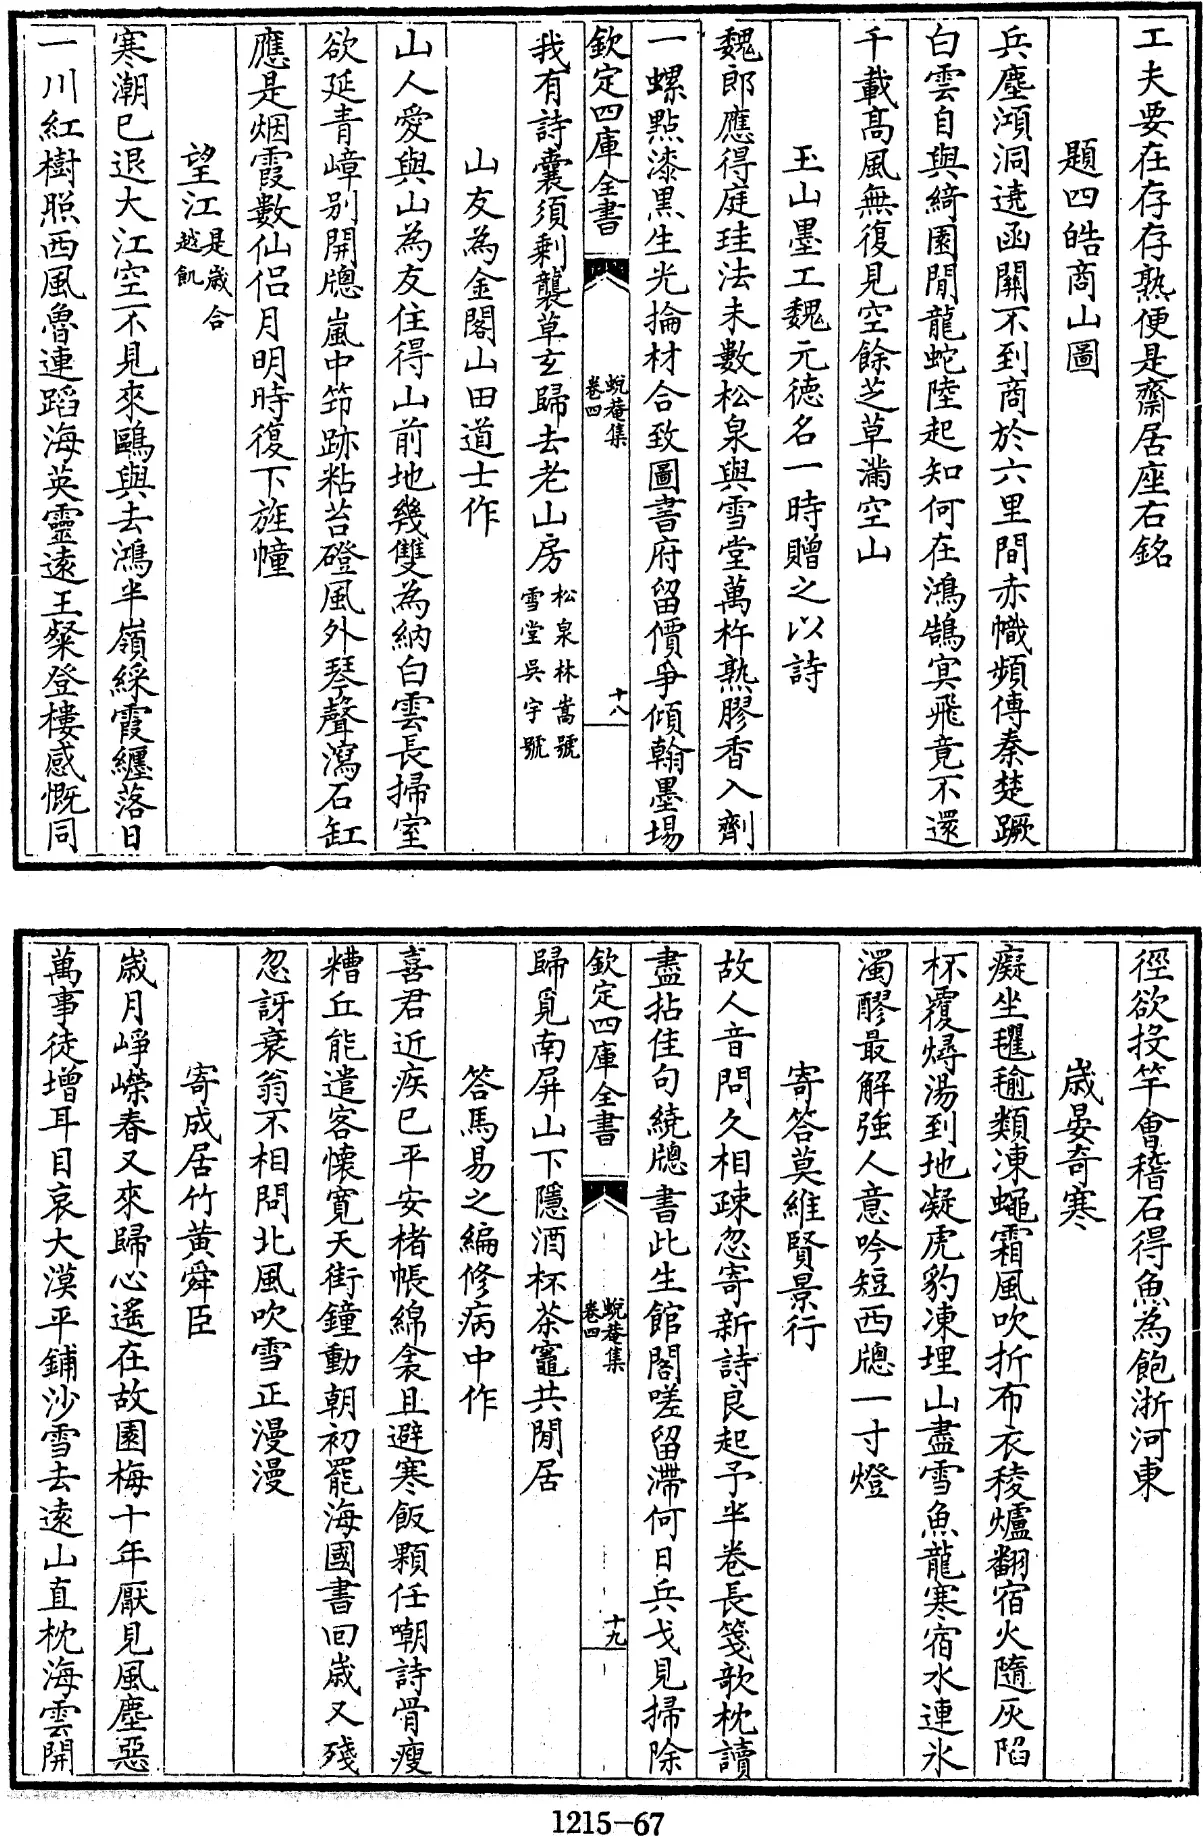 工夫要在存存熟便是齋居座右銘
題四皓商山圖
兵塵澒洞遶函關不到商於六里間赤幟頻傳秦楚蹶
白雲自與綺園閒龍蛇陸起知何在鴻鵠冥飛竟不還
千載髙風無復見空餘芝草滿空山
玉山墨工魏元徳名一時贈之以詩
魏郎應得庭珪法未數松泉與雪堂萬杵熟膠香入劑
一螺點漆黒生光掄材合致圖書府留價爭傾翰墨塲
欽定四庫全書 蛻菴集卷四 十八
我有詩囊須剩襲草玄歸去老山房松泉林嵩號雪堂吳宇號
山友為金閣山田道士作
山人愛與山為友住得山前地幾雙為納白雲長掃室
欲延青嶂别開牕嵐中笻跡粘苔磴風外琴聲瀉石缸
應是烟霞數仙侣月明時復下旌幢
望江是嵗合越飢
寒潮已退大江空不見來鷗與去鴻半嶺綵霞纒落日
一川紅樹照西風魯連蹈海英靈逺王粲登樓感慨同
徑欲投竿會稽石得魚為飽浙河東
嵗晏奇寒
癡坐氍毹類凍蠅霜風吹折布衣稜爐翻宿火隨灰陷
杯覆燖湯到地凝虎豹凍埋山盡雪魚龍寒宿水連氷
濁醪最解強人意吟短西牕一寸燈
寄答莫維賢景行
故人音問久相疎忽寄新詩良起予半卷長箋歌枕讀
盡拈佳句繞牕書此生館閣嗟留滯何日兵戈見掃除
欽定四庫全書 蛻菴集卷四 十九
歸覓南屏山下隱酒杯茶竈共閒居
答馬易之編修病中作
喜君近疾已平安楮帳綿衾且避寒飯顆任嘲詩骨瘦
糟丘能遣客懐寛天街鐘動朝初罷海國書回嵗又殘
忽訝衰翁不相問北風吹雪正漫漫
寄成居竹黄舜臣
嵗月崢嶸春又來歸心遥在故園梅十年厭見風塵惡
萬事徒增耳目哀大漠平鋪沙雪去逺山直枕海雲開
1215-67